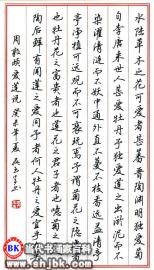 水陆草木之花可爱者甚蕃晋陶渊明独爱菊
自李唐来世人甚爱牡丹予独爱莲之出淤泥而不
染濯清涟而不妖中通外直不蔓不枝香远益清亭
亭净植可远观而不可亵玩焉予谓菊花之隐逸者
也牡丹花之富贵者也莲花之君子者也噫菊之爱
陶后鲜有闻莲之爱同予者何人牡丹之爱宜乎众矣
周敦颐爱莲说
BK